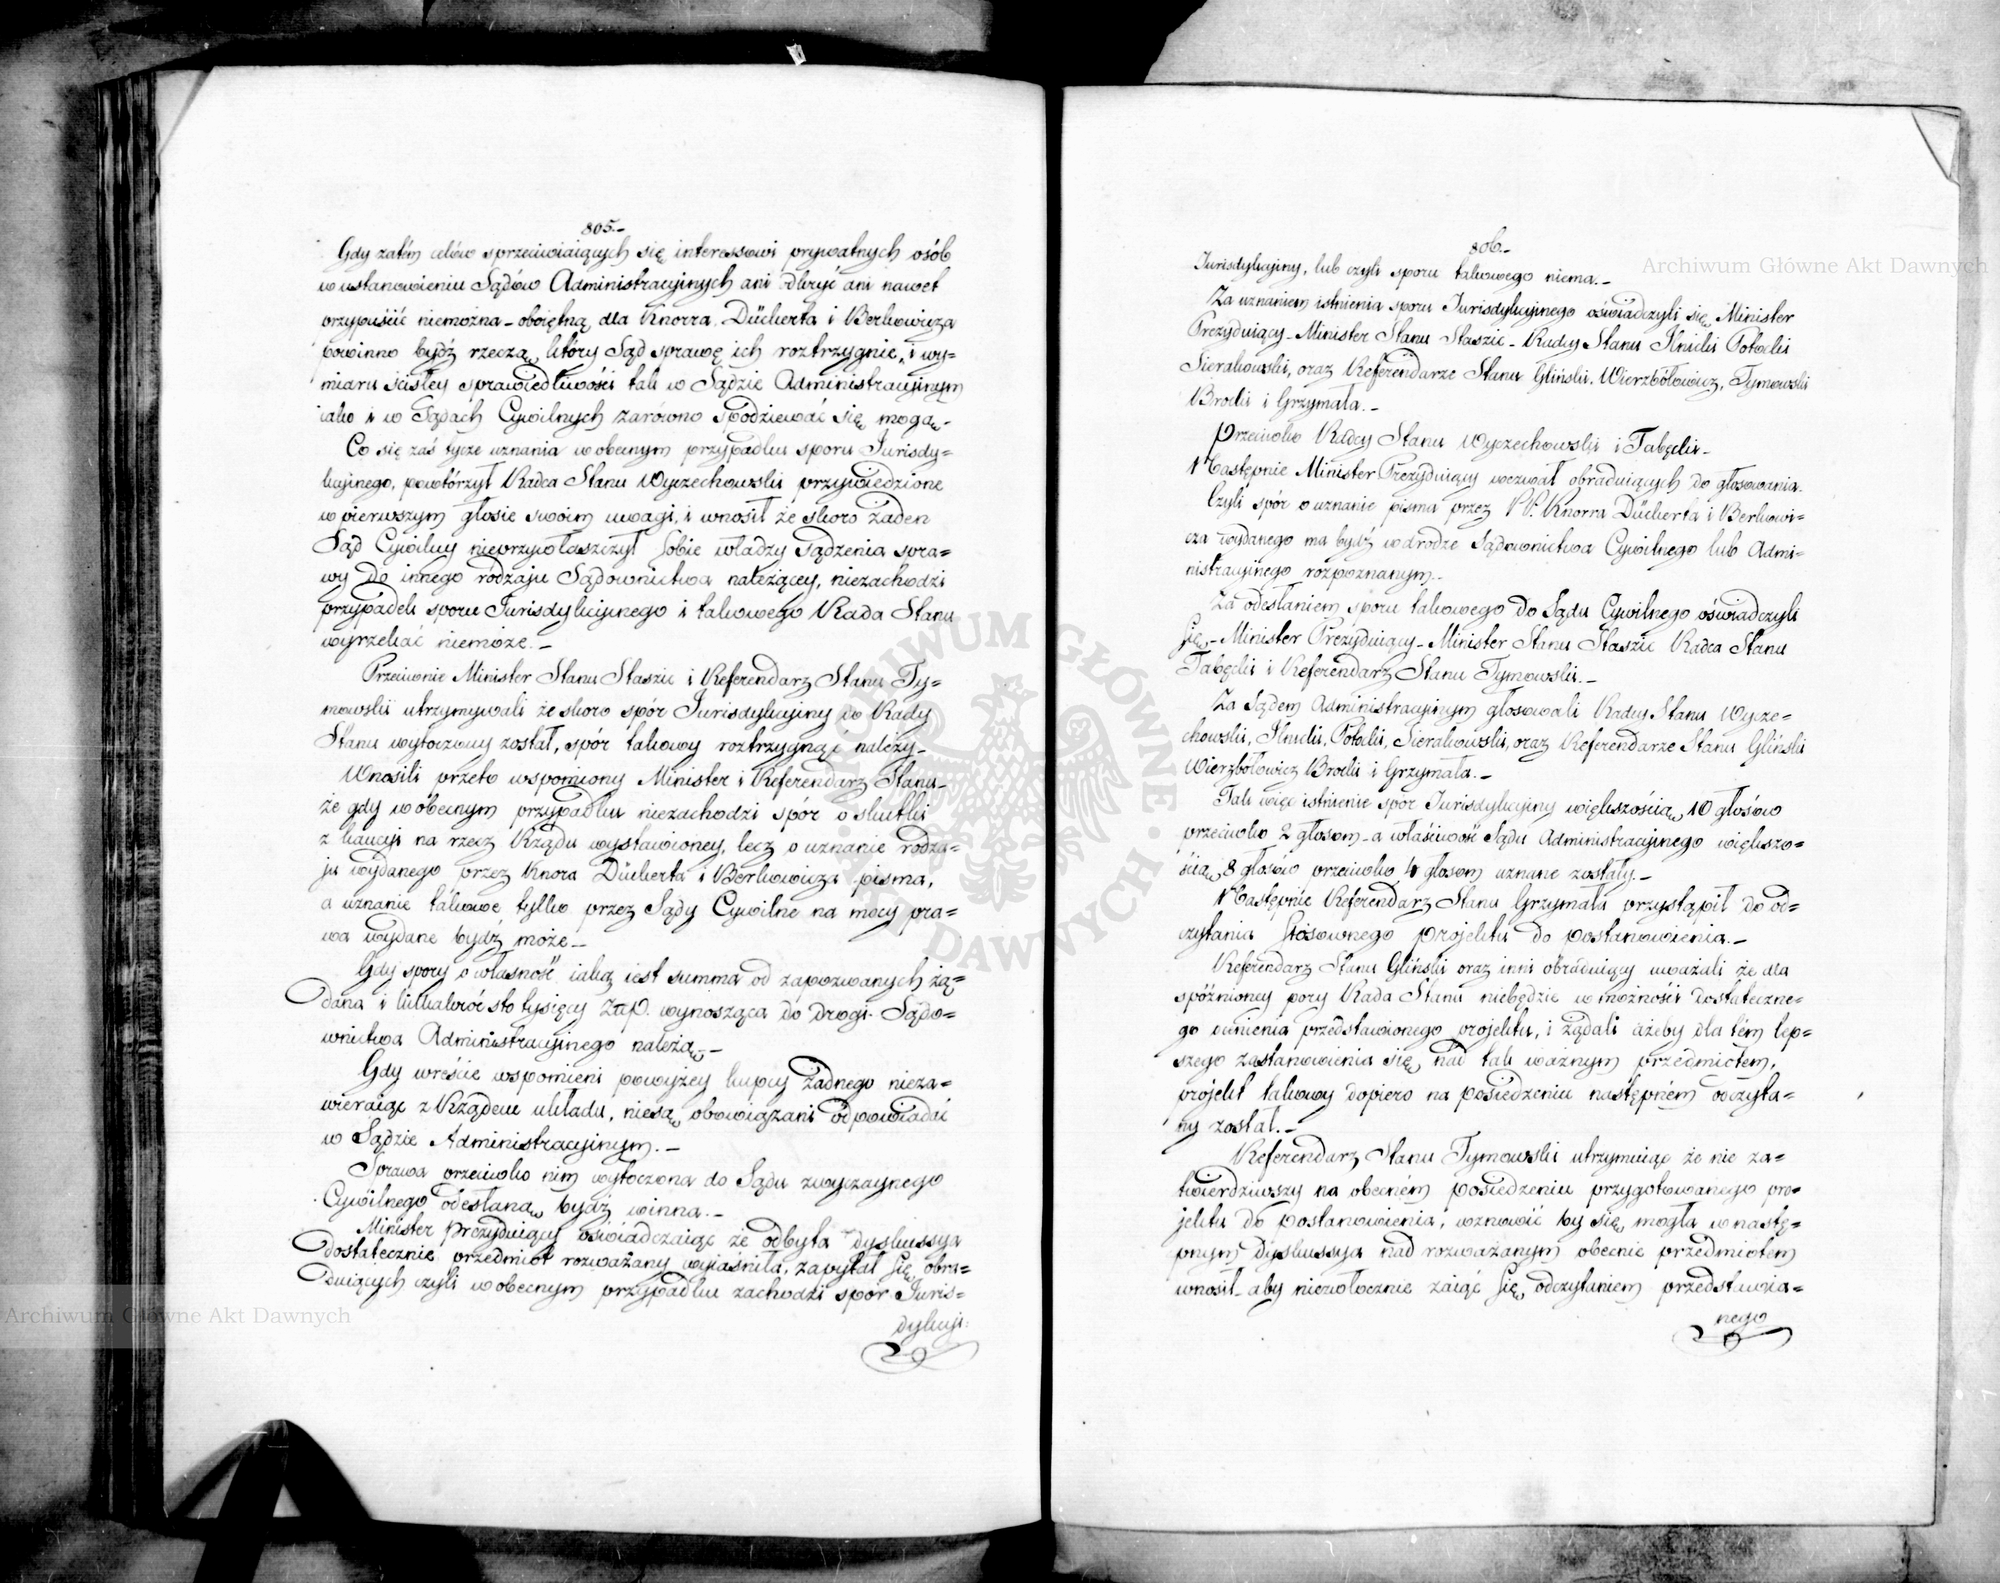 805.
Gdy zatém celów sprzeciwiaiących się interessowi prywatnych osób
w ustanowieniu Sądów Administracyinych ani odkryć ani nawet
przypuścić niemożna – oboiętną dla Knorra, Dückerta i Berkowicza
powinno bydź rzeczą, który Sąd sprawę ich roztrzygnie, i wy=
miaru ścisłey sprawiedliwości tak w Sądzie Administracyinym
iako i w Sądach Cywilnych zarówno spodziewać się mogą.
Co się zaś tycze uznania w obecnym przypadku sporu Jurisdy=
kcyinego, powtórzył Radca Stanu Wyczechowski przywiedzione
w pierwszym głosie swoim uwagi, i wnosił że skoro żaden
Sąd Cywilny nieprzywłaszczył sobie władzy sądzenia spra=
wy do innego rodzaju Sądownictwa należącey, niezachodzi
przypadek sporu Jurisdykcyinego i takowego Rada Stanu
wyrzekać niemoże.–
Przeciwnie Minister Stanu Staszic i Referendarz Stanu Ty=
mowski utrzymywali że skoro spór Jurisdykcyiny do Rady
Stanu wytoczony został, spór takowy roztrzygnąć należy–
Wnosili przeto wspomiony Minister i Referendarz Stanu–
że gdy w obecnym przypadku niezachodzi spór o skutki
z kaucyi na rzecz Rządu wystawioney, lecz o uznanie rodza=
ju wydanego przez Knora Dückerta i Berkowicza pisma,
a uznanie takowe tylko przez Sądy Cywilne na mocy pra=
wa wydane bydź może.–
Gdy spory o własność iaką iest summa od zapozwanych żą=
dana i kilkakroć sto tysięcy Złp. wynosząca do drogi Sądo=
wnictwa Administracyinego należą.–
Gdy wreście wspomieni powyżey kupcy żadnego nieza=
wieraiąc z Rządem układu, niesą obowiązani odpowiadać
w Sądzie Administracyinym.–
Sprawa przeciwko nim wytoczona do Sądu zwyczaynego
Cywilnego odesłaną bydź winna.–
Minister Prezyduiący oświadczaiąc że odbyta dyskussya
dostatecznie przedmiot rozważany wyiaśniła, zapytał się obra=
duiących czyli w obecnym przypadku zachodzi spór Juris=
dykcyi:
806.
Jurisdykcyiny, lub czyli sporu takowego niema.–
Za uznaniem istnienia sporu Jurisdykcyinego oświadczyli się, Minister
Prezyduiący – Minister Stanu Staszic – Radcy Stanu Ilnicki Potocki
Sierakowski, oraz Referendarze Stanu Gliński, Wierzbółowicz, Tymowski
Brocki i Grzymała.–
Przeciwko Radcy Stanu Wyczechowski i Tabęcki–
Następnie Minister Prezyduiący wezwał obraduiących do głosowania.
Czyli spór o uznanie pisma przez P.P. Knorra Dückerta i Berkowi=
cza wydanego ma bydź w drodze Sądownictwa Cywilnego lub Admi=
nistracyinego rozpoznanym.–
Za odesłaniem sporu takowego do Sądu Cywilnego oświadczyli
się – Minister Prezyduiący – Minister Stanu Staszic Radca Stanu
Tabęcki i Referendarz Stanu Tymowski.–
Za Sądem Administracyinym głosowali Radcy Stanu Wycze=
chowski, Ilnicki, Potocki, Sierakowski, oraz Referendarze Stanu Gliński
Wierzbółowicz Brocki i Grzymała.–
Tak więc istnienie spór Jurisdykcyiny większością 10 głosów
przeciwko 2 głosom – a właściwość Sądu Administracyinego większo=
ścią 8 głosów przeciwko 4 głosom uznane zostały.–
Następnie Referendarz Stanu Grzymała przystąpił do od=
czytania stosownego projektu do postanowienia.–
Referendarz Stanu Gliński oraz inni obraduiący uważali że dla
spóźnioney pory Rada Stanu niebędzie w możności dostateczne=
go ocenienia przedstawionego projektu, i żądali ażeby dla tém lep=
szego zastanowienia się, nad tak ważnym przedmiotem,
projekt takowy dopiero na posiedzeniu następném odczyta=
ny został.–
Referendarz Stanu Tymowski utrzymuiąc że nie za=
twierdziwszy na obecném posiedzeniu przygotowanego pro=
jektu do postanowienia, wznowić by się, mogła w nastę=
pnym dyskussya nad rozważanym obecnie przedmiotem
wnosił – aby niezwłocznie zaiąć się, odczytaniem przedstawia=
nego
Archiwum Główne Akt Dawnych
Archiwum Główne Akt Dawnych
ARCHIWUM GŁÓWNE
AKT DAWNYCH